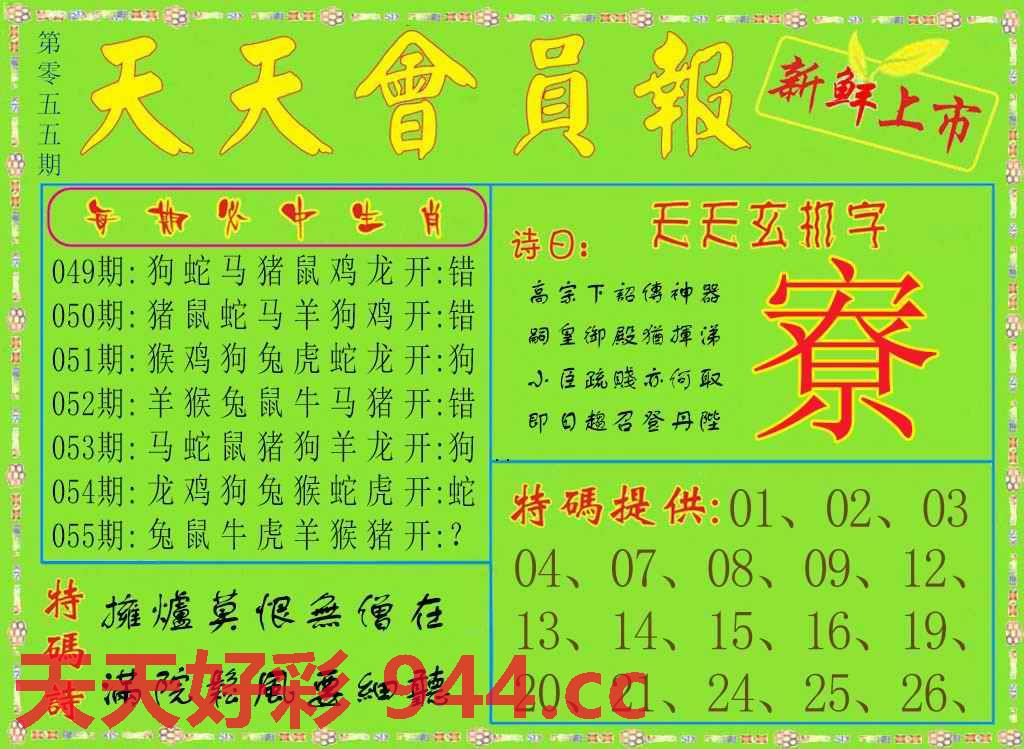 第零五五期
天天會員報
新鮮上市
每期必中生肖
049期:狗蛇马猪鼠鸡龙开:错
050期:猪鼠蛇马羊狗鸡开:错
051期:猴鸡狗兔虎蛇龙开:狗
052期:羊猴兔鼠牛马猪开:错
053期:马蛇鼠猪狗羊龙开:狗
054期:龙鸡狗兔猴蛇虎开:蛇
055期:兔鼠牛虎羊猴猪开:?
特碼詩
擁爐莫恨無僧在
满院鬆風要細聽
天天玄机字
诗曰:
高宗下詔傳神器
嗣皇御殿猶揮涕
小臣疏賤亦何取
即日趨召登丹陛
寮
特碼提供:01、02、03
04、07、08、09、12、
13、14、15、16、19、
20、21、24、25、26、
天天好彩 944.cc